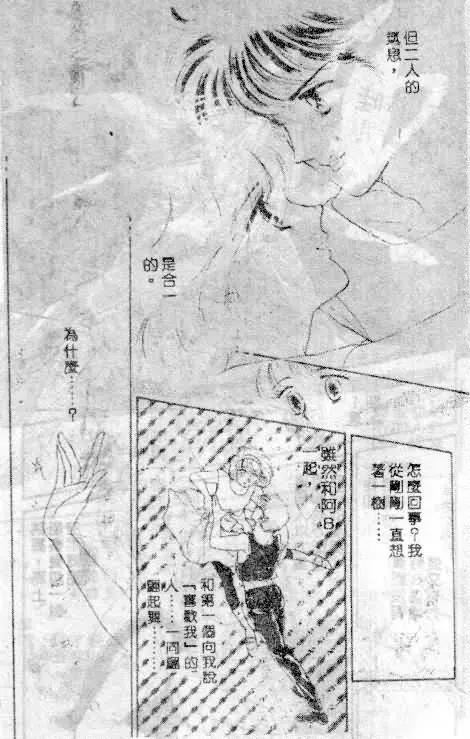 但二人的
氣息，
是合一
的。
怎麼回事？我
從剛剛一直想
著一樹……
雖然和阿B
一起，
和第一個向我說
「喜歡我」的
人……一同
起舞……
為什麼……？